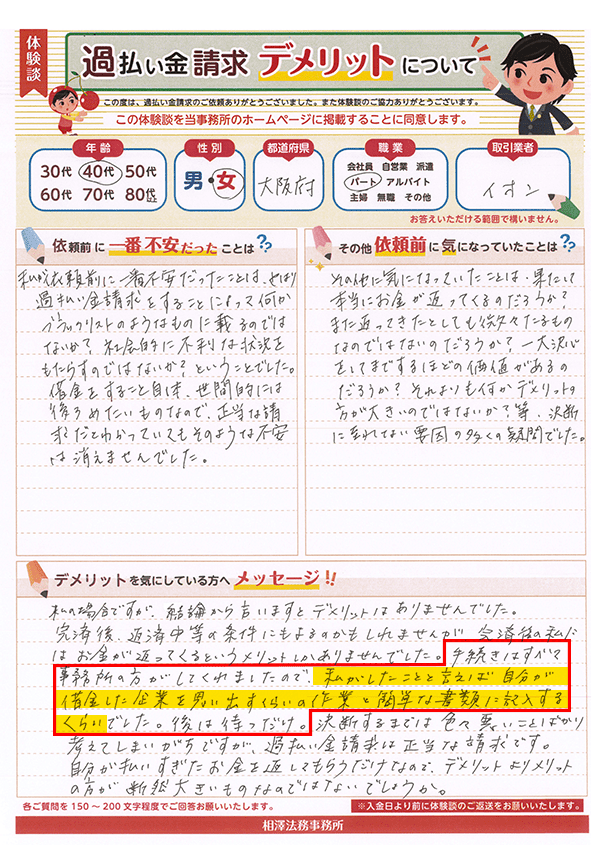 体験談
過払い金請求 デメリットについて
この度は、過払い金請求のご依頼ありがとうございました。また体験談のご協力ありがとうございます。
この体験談を当事務所のホームページに掲載することに同意します。
年齢
30代 40代 50代
60代 70代 80代以上
性別
男・女
都道府県
大阪府
職業
会社員 自営業 派遣
パート アルバイト
主婦 無職 その他
取引業者
イオン
お答えいただける範囲で構いません。
依頼前に一番不安だったことは??
私が依頼前に一番不安だったことは、やはり
過払い金請求をすることによって何か
ブラックリストのようなものに載るのでは
ないか? 社会的に不利な状況を
もたらすのではないか?ということでした。
借金をすること自体、世間的には
後ろめたいものなので、正当な請
求だとわかっていてもそのような不安
は消えませんでした。
その他依頼前に気になっていたことは??
その他に気になっていたことは、果たして
本当にお金が返ってくるのだろうか?
また返ってきたとしても微々たるもの
なのではないのだろうか?一大決心
をしてまでするほどの価値があるの
だろうか? それよりも何かデメリットの
方が大きいのではないか?等、決断
に至れない要因の多くの疑問でした。
デメリットを気にしている方へメッセージ!!
私の場合ですが、結論から言いますとデメリットはありませんでした。
完済後、返済中等の条件にもよるのかもしれませんが、完済後の私に
はお金が返ってくるというメリットしかありませんでした。手続きはすべて
事務所の方がしてくれましたので、私がしたことと言えば自分が
借金した企業を思い出すくらいの作業と簡単な書類に記入する
くらいでした。後は待つだけ。決断するまでは色々悪いことばかり
考えてしまいがちですが、過払い金請求は正当な請求です。
自分が払いすぎたお金を返してもらうだけなので、デメリットよりメリット
の方が断然大きいものなのではないでしょうか。
各ご質問を150~200文字程度でご回答お願いいたします。
※入金日より前に体験談のご返送をお願いいたします。
相澤法務事務所